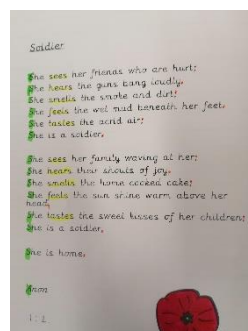 Soldier
She sees her friends who are hurt;
She hears the guns bang loudly,
She smells the smoke and dirt;
She feels the wet mud beneath her feet,
She tastes the acrid air;
She is a soldier.
She sees her family waving at her;
She hears their shouts of joy,
She smells the home cooked cake;
She feels the sun shine warm above her
head,
She tastes the sweet kisses of her children;
She is a soldier,
She is home.
Anon